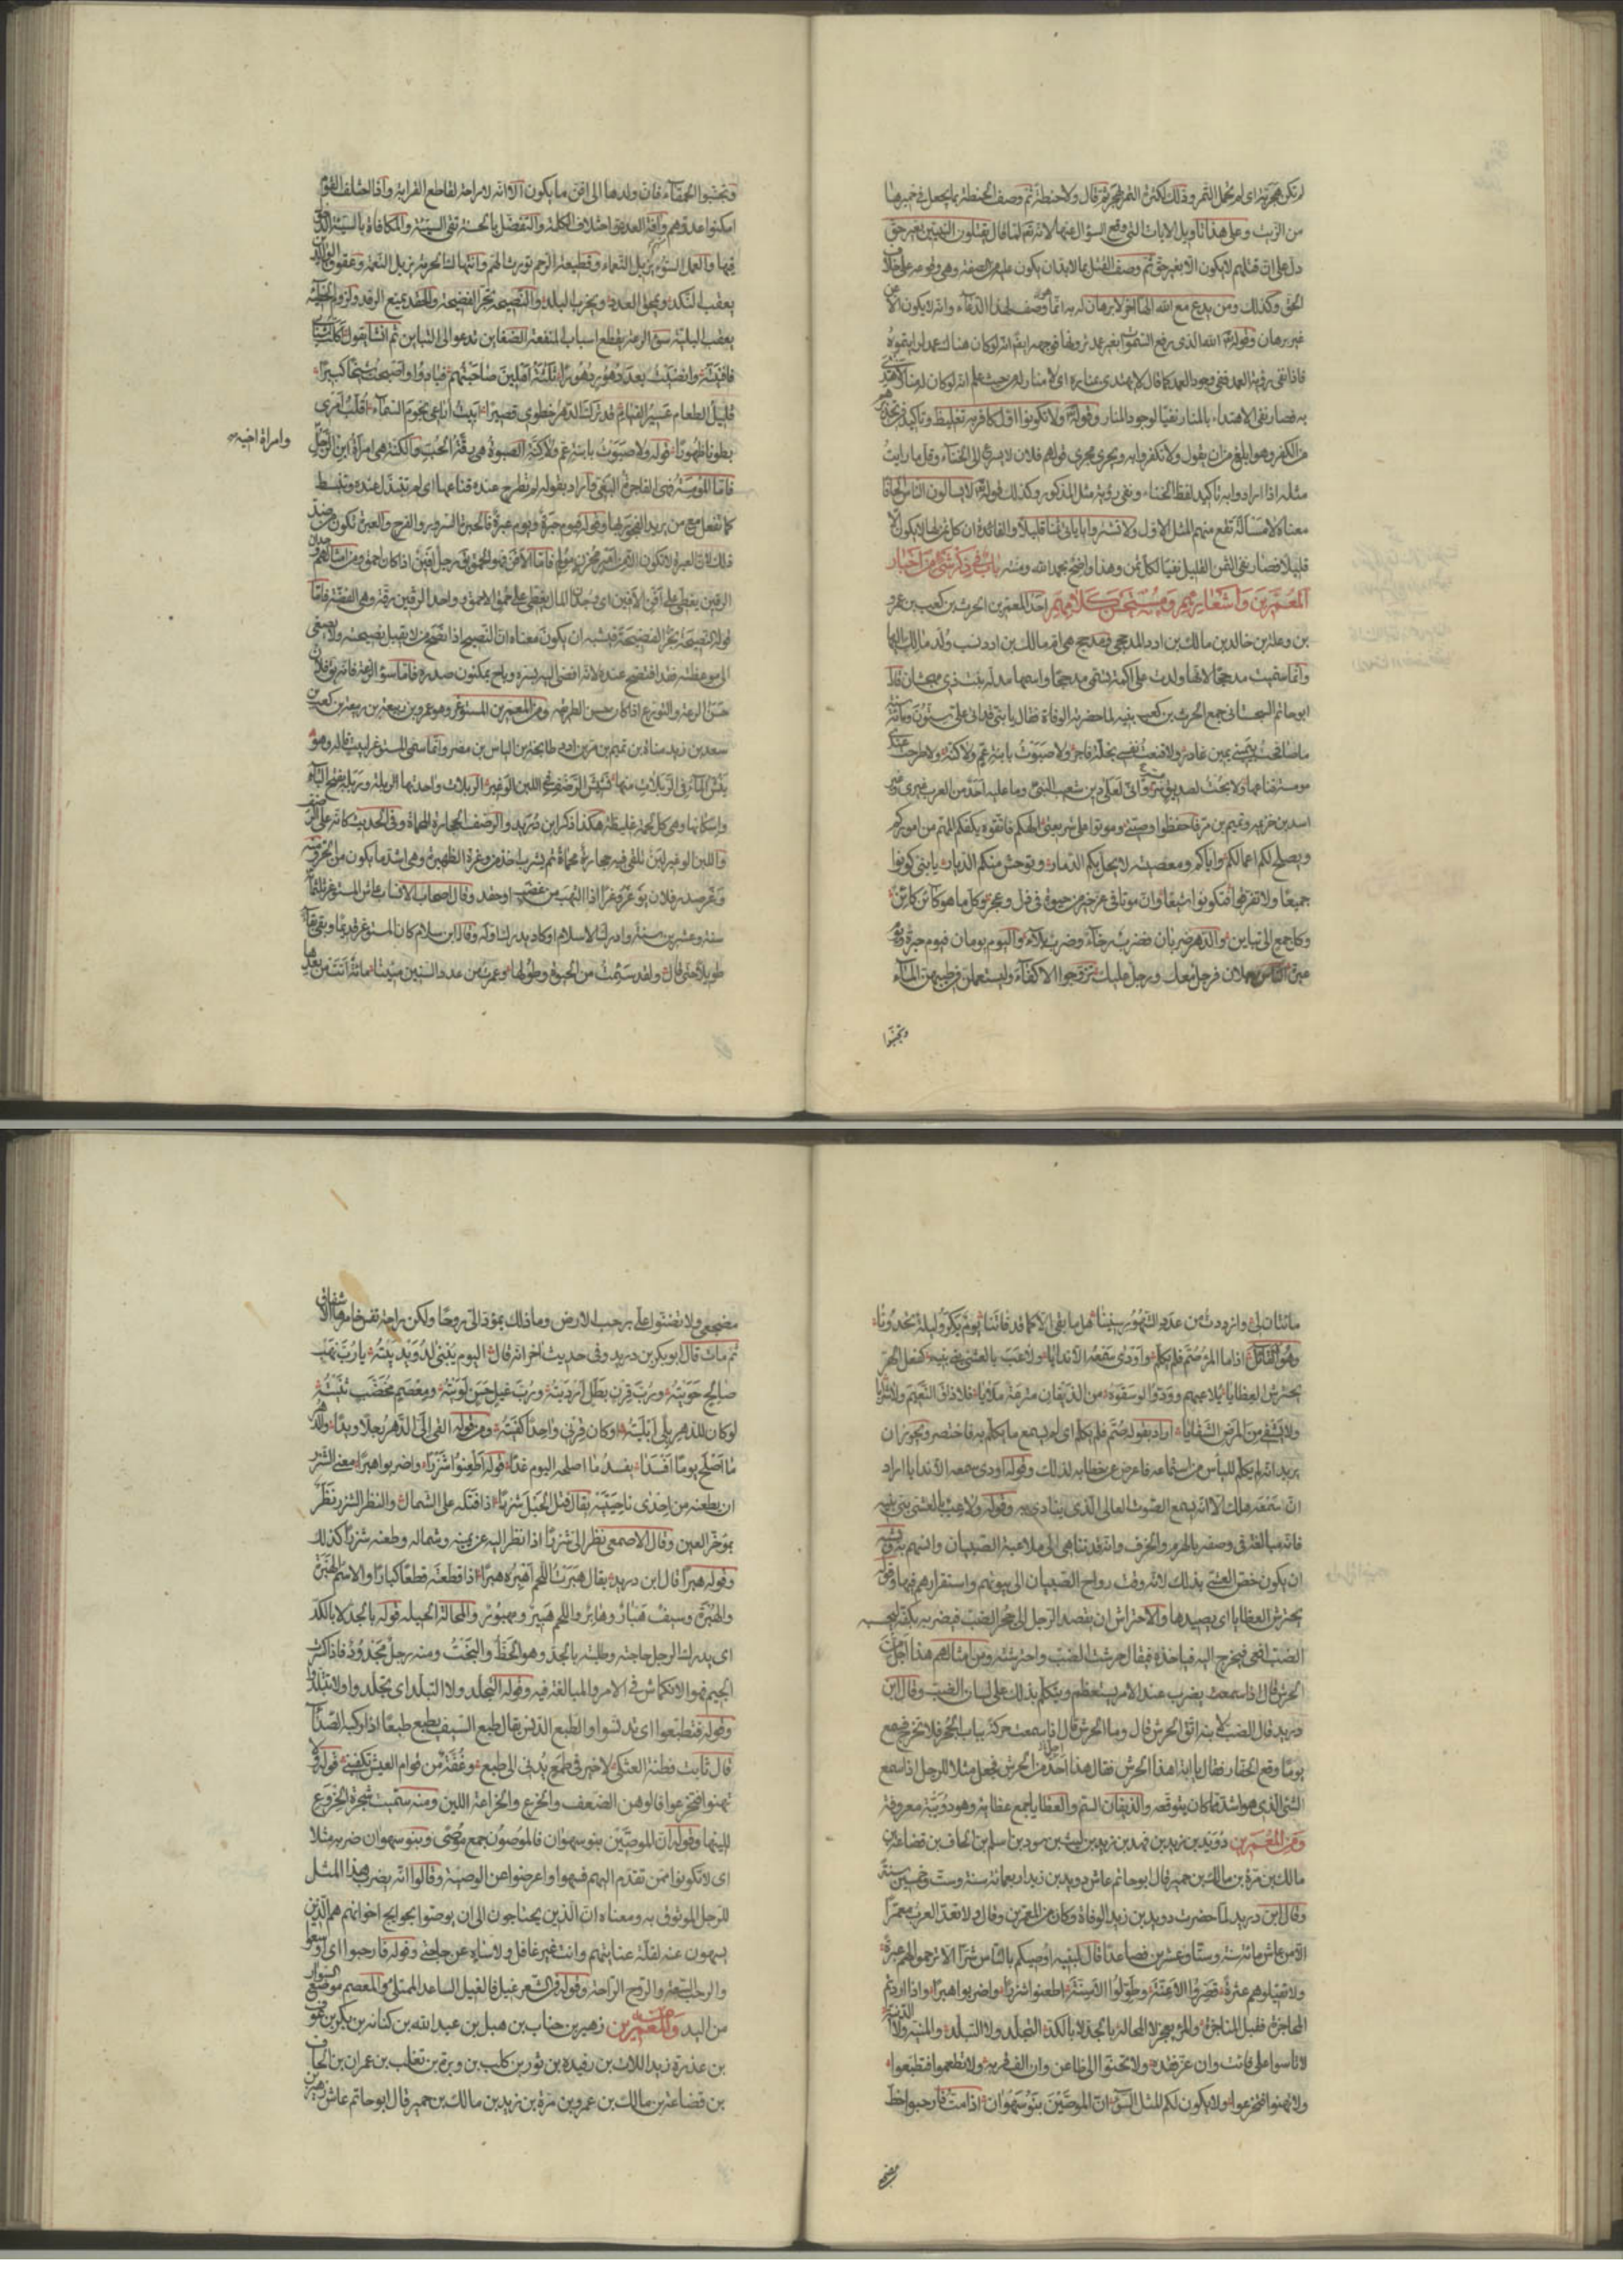 لم تكن هجرية اى لم تحمل التمر وذلك لكثرة التمر بهجر ثم قال ولا حنطة ثم وصف الحنطة بما يجعل في خبزها
من الزيت وعلى هذا تاويل الايات التى وقع السؤال عنها لانه تعالى لما قال يقتلون النبيين بغير حق
دل على ان قتلهم لا يكون الا بغير حق ثم وصف القتل بما لا بد ان يكون عليه من الصفة وهى وقوعه على خلاف
الحق وكذلك ومن يدع مع الله الها اخر لا برهان له به انما هو وصف لهذا الدعاء وانه لا يكون الا عن
غير برهان وقوله تعالى الله الذى رفع السموات بغير عمد ترونها فوجهه ايضا انه لو كان هناك عمد لرايتموه
فاذا نفى رؤية العمد نفى وجود العمد كما قال لا يهتدى بمناره اى لا منار له من حيث علم انه لو كان له منار لاهتدى
به فصار نفى الاهتداء بالمنار نفيا لوجود المنار وقوله تعالى ولا تكونوا اول كافر به تغليظ وتاكيد فى تحذيرهم
من الكفر وهو ابلغ من ان يقول ولا تكفروا به ويجرى مجرى قولهم فلان لا يسرع الى الخناء وقل ما رايت
مثله اذا ارادوا به تاكيد لفظ الخناء ونفى رؤية مثل المذكور وكذلك قوله تعالى لا يسالون الناس الحافا
معناه لا مسالة تقع منهم المثل الاول ولا تشتروا باياتى ثمنا قليلا والفائدة ان كل ثمن لها لا يكون الا
قليلا فصار نفى الثمن القليل نفيا لكل ثمن وهذا واضح بحمد الله ومنه باب فى ذكر شئ من اخبار
المعمرين واشعارهم ومستحسن كلامهم احد المعمرين الحرث بن كعب بن عمرو
بن وعلة بن خالد بن مالك بن ادد المذحجى ومذحج هى ام مالك بن ادد نسب ولد مالك اليها
وانما سميت مذحجا لانها ولدت على اكمة تسمى مذحجا واسمها مدلة بنت ذى مهجشان قال
ابو حاتم السجستانى جمع الحرث بن كعب بنيه لما حضرته الوفاة فقال يا بنى قد اتى على ستون ومائة سنة
ما صافحت يمينى يمين غادر ولا قنعت نفسى بخلة فاجر ولا صبوت بابنة عم ولا كنة ولا طرحت عندى
مومسة قناعها ولا بحت لصديق بسر وانى لعلى دين شعيب النبى وما عليه احد من العرب غيرى وغير
اسد بن خزيمه وتميم بن مر فاحفظوا وصيتى وموتوا على شريعتى الهكم فاتقوه يكفكم المهم من اموركم
ويصلح لكم اعمالكم واياكم ومعصيته لا يحل بكم الدمار وتوحش منكم الديار يا بنى كونوا
جميعا ولا تفرقوا فتكونوا شيعا وان موتا فى عز خير من حيوة فى ذل وعجز وكل ما هو كائن كائن
وكل جمع الى تباين والدهر ضربان فضرب رخاء وضرب بلاء واليوم يومان فيوم حبرة ويوم
عبرة والناس رجلان فرجل معك ورجل عليك تزوجوا الاكفاء وليستعملن فى طيبهن الماء
وتجنبوا
وتجنبوا الحمقاء فان ولدها الى افن ما يكون الا انه لا راحة لقاطع القرابة واذا اختلف القوم
امكنوا عدوهم وافة العدد اختلاف الكلمة والتفضل بالحسنة تقى السيئة والمكافاة بالسيئة الدخول
فيها والعمل السوء يزيل النعماء وقطيعة الرحم تورث الهم وانتهاك الحرمة يزيل النعمة وعقوق الوالدين
يعقب النكد ويمحق العدد ويخرب البلد والنصيحة تجر الفضيحة والحقد يمنع الرفد ولزوم الخطيئة
يعقب البلية سوء الرعة يقطع اسباب المنفعة الضغاين تدعو الى التباين ثم انشا يقول اكلت شبابى
فافنيته وانضيت بعد دهور دهورا ثلثة اهلين صاحبتهم فبادوا واصبحت شيخا كبيرا
قليل الطعام عسير القيام قد ترك الدهر خطوى قصيرا ابيت اراعى نجوم السماء اقلب امرى
بطونا ظهورا قوله ولا صبوت بابنة عم ولا كنة الصبوة هى رقة الحب والكنة هى امراة ابن الرجل
وامراة اخيه
فاما المومسة فهى الفاجرة البغى واراد بقوله لم تطرح عنده قناعها اى لم تتبذل عنده وتنبسط
كما تفعل مع من يريد الفجور بها وقوله فيوم حبرة ويوم عبرة فالحبرة السرور والفرح والعبرة تكون من ضد
ذلك لان العبرة لا تكون الا من امر محزن مولم فاما الافن فهو الحمق يق رجل افين اذا كان احمق ومن امثالهم وجدان
الرقين يغطى على افن الافين اى وجدان المال يغطى على حمق الاحمق وواحد الرقين رقة وهى الفضة فاما
قوله النصيحة تجر الفضيحة فيشبه ان يكون معناه ان النصيح اذا نصح من لا يقبل نصيحته ولا يصغى
الى موعظته فقد افتضح عنده لانه افضى اليه بسره وباح بمكنون صدره فاما سوء الرعة فانه يق فلان
حسن الرعة والتورع اذا كان حسن الطريقه ومن المعمرين المستوغر وهو عمرو بن ربيعة بن كعب بن
سعد بن زيد مناة بن تميم بن مر بن اد بن طابخة بن الياس بن مضر وانما سمى المستوغر لبيت قاله وهو
ينش الماء فى الربلات منها نشيش الرضف فى اللبن الوغير الربلات واحدتها الربلة وربلة بفتح الباء
واسكانها وهى كل لحمة غليظة هكذا ذكر ابن دريد والرضف الحجارة المحماة وفى الحديث كانه على الرضف
واللبن الوغير لبن تلقى فيه حجارة محماة ثم يشرب اخذ من وغرة الظهيرة وهى اشد ما يكون من الحر ومنه
وغر صدر فلان يوغر وغرا اذا التهب من غضب او حقد وقال اصحاب الانساب عاش المستوغر ثلثمائة
سنة وعشرين سنة وادرك الاسلام او كاد يدرك اوله وقال ابن سلام كان المستوغر قديما وبقى بقاء
طويلا حتى قال ولقد سئمت من الحيوة وطولها وعمرت من عدد السنين مئينا مائة اتت من بعدها
مائتان لى وازددت من عدد الشهور سنينا هل ما بقى الا كما قد فاتنا يوم يكر وليلة تحدونا
وهو القائل اذا ما المرء صم فلم يكلم واودى سمعه الا ندايا ولاعب بالعشى بنى بنيه كفعل الهر
يحترش العظايا يلاعبهم وودوا لو سقوه من الذيفان مترعة ملايا فلا ذاق النعيم ولا شرابا
ولا يشفى من المرض الشفايا اراد بقوله صم فلم يكلم اى لم يسمع ما يكلم به فاختصر ويجوز ان
يريد انه لم يكلم للياس من استماعه فاعرض عن خطابه لذلك وقوله اودى سمعه الا ندايا اراد
ان سمعه هلك الا انه يسمع الصوت العالى الذى ينادى به وقوله ولاعب بالعشى بنى بنيه
فانه مبالغة فى وصفه بالهرم والخرف وانه قد تناهى الى ملاعبة الصبيان وانسهم به ويشبه
ان يكون خص العشى بذلك لانه وقت رواح الصبيان الى بيوتهم واستقرارهم فيها وقوله
يحترش العظايا اى يصيدها والاحتراش ان يقصد الرجل الى جحر الضب فيضربه بكفه ليحسبه
الضب افعى فيخرج اليه فياخذه فيقال حرشت الضب واحترشته ومن امثالهم هذا اجل من
الحرش قال اذا سمعت يضرب عند الامر يستعظم ويتكلم بذلك على لسان الضب وقال ابن
دريد قال الضب لابنه اتق الحرش قال وما الحرش قال اذا سمعت حركة بباب الجحر فلا تخرج فسمع
يوما وقع الحفار فقال يا ابة اهذا الحرش فقال هذا اجل من الحرش فجعل مثلا للرجل اذا سمع
الشئ الذى هو اشد مما كان يتوقعه والذيفان السم والعظايا جمع عظاية وهو دويبة معروفة
ومن المعمرين دويد بن زيد بن نهد بن زيد بن ليث بن سود بن اسلم بن الحاف بن قضاعة بن
مالك بن مرة بن مالك بن حمير قال ابو حاتم عاش دويد بن زيد اربعمائة سنة وست وخمسين سنة
وقال ابن دريد لما حضرت دويد بن زيد الوفاة وكان من المعمرين وقال ولا تعد العرب معمرا
الا من عاش مائة سنة وستا وعشرين فصاعدا قال لبنيه اوصيكم بالناس شرا لا ترحموا لهم عبرة
ولا تقيلوهم عثرة قصروا الاعنة وطولوا الاسنة اطعنوا شزرا واضربوا هبرا واذا اردتم
المحاجزة فقبل المناجزة والمرء يعجز لا المحالة بالجد لا بالكد التجلد ولا التبلد والمنية ولا الدنية
لا تاسوا على فائت وان عز فقده ولا تحنوا الى ظاعن وان الف قربه ولا تطمعوا فتطبعوا
ولا تهنوا فتخرعوا ولا يكون لكم المثل السوء ان الموصين بنو سهوان اذا مت فارحبوا خط
مضجعى
مضجعى ولا تضنوا على برحب الارض وما ذلك بمؤد الى روحا ولكن راحة نفس خامرها الاشفاق
ثم مات قال ابو بكر بن دريد وفى حديث اخر انه قال اليوم يبنى لدويد بيته يا رب نهب
صالح حويته ورب قرن بطل ارديته ورب غيل حسن لويته ومعصم مخضب ثنيته
لو كان للدهر بلى ابليته او كان قرنى واحدا كفيته ومن قوله القى على الدهر رجلا ويدا والدهر
ما اصلح يوما افسدا يفسد ما اصلحه اليوم غدا قوله اطعنوا شزرا واضربوا هبرا معنى الشزر
ان يطعنه من احدى ناحيتيه يقال فتل الحبل شزرا اذا فتله على الشمال والنظر الشزر نظر
بمؤخر العين وقال الاصمعى نظر الى شزرا اذا نظر اليه عن يمينه وشماله وطعنه شزرا كذلك
وقوله هبرا قال ابن دريد يقال هبرت اللحم اهبره هبرا اذا قطعته قطعا كبارا والاسم الهبرة
والهبرة وسيف هبار وهابر واللحم هبير ومهبور والمحالة الحيله قوله بالجد لا بالكد
اى يدرك الرجل حاجته وطلبته بالجد وهو الحظ والبخت ومنه رجل مجدود فاذا كسرت
الجيم فهو الانكماش فى الامر والمبالغة فيه وقوله التجلد ولا التبلد اى تجلدوا ولا تتبلدوا
وقوله فتطبعوا اى تدنسوا والطبع الدنس يقال طبع السيف يطبع طبعا اذا ركبه الصدا
قال ثابت قطنة العتكى لا خير فى طمع يدنى الى طبع وغفة من قوام العيش تكفينى قوله ولا
تهنوا فتخرعوا فالوهن الضعف والخرع والخراعة اللين ومنه سميت شجرة الخروع
للينها وقوله ان الموصين بنو سهوان فالموصون جمع موصى وبنو سهوان ضربه مثلا
اى لا تكونوا ممن تقدم اليهم فسهوا واعرضوا عن الوصية وقالوا انه يضرب هذا المثل
للرجل الموثوق به ومعناه ان الذين يحتاجون الى ان يوصوا بحوايج اخوانهم هم الذين
يسهون عنه لقلة عنايتهم وانت غير غافل ولا ساه عن حاجتى وقوله فارحبوا اى اوسعوا
والرحب السعة والروح الراحة وقوله فى الشعر غيل فالغيل الساعد الممتلئ والمعصم موضع السوار
من اليد ومن المعمرين زهير بن جناب بن هبل بن عبد الله بن كنانه بن بكر بن عوف
بن عذرة زيد اللات بن رفيده بن ثور بن كلب بن وبرة بن تغلب بن عمران بن الحاف
بن قضاعة بن مالك بن عمرو بن مرة بن زيد بن مالك بن حمير قال ابو حاتم عاش زهير بن